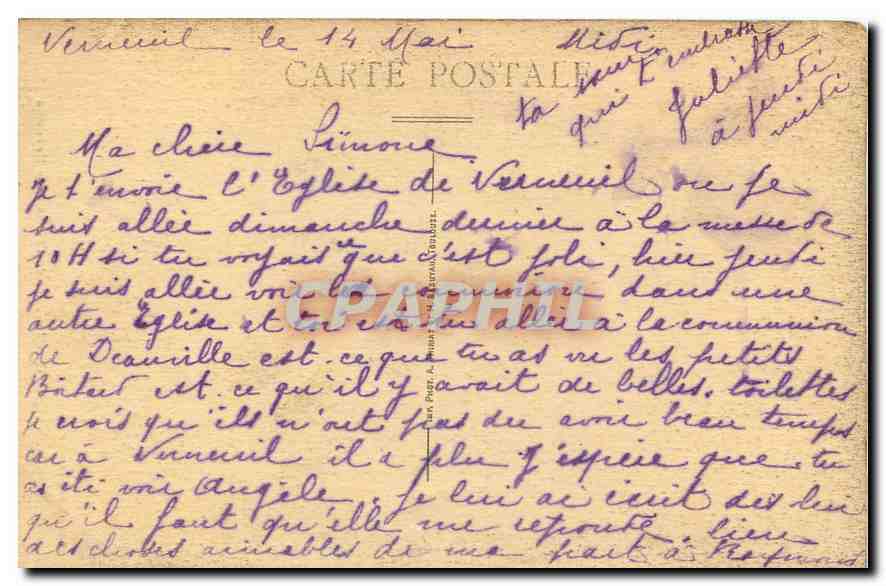 Verneuil le 14 Mai Midi
CARTE POSTALE
ta sœur
qui t'embrasse
Juliette
à jeudi
midi
Ma chère Simone
Je t'envoie l'Eglise de Verneuil ou je
suis allée dimanche dernier à la messe de
10H si tu voyais que c'est joli, hier jeudi
je suis allée voir la communion dans une
autre Eglise et toi es tu allée à la communion
de Deauville est-ce que tu as vu les petits
est-ce qu'il y avait de belles toilettes
je crois qu'ils n'ont pas du avoir beau temps
car à Verneuil il a plu J'espère que tu
as été voir Angèle. Je lui ai écrit dis lui
qu'il faut qu'elle me reponde. bien
des choses aimables de ma part à Raymond
IMP. PHOT. A. TOULOUSE
CPAPHIL